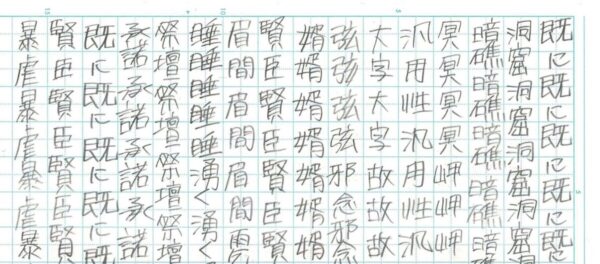 既に既に既に既に
洞窟洞窟洞窟洞窟
暗礁暗礁暗礁暗礁
冥冥冥冥岬岬岬
汎用性汎用性汎
大字大字故故故
弦弦弦邪念邪念
婿婿婿婿婿婿婿
賢臣賢臣賢臣賢
眉間眉間眉間
睡睡睡睡湧く湧く
祭壇祭壇祭壇祭壇
承諾承諾承諾承諾
既に既に既に既
賢臣賢臣賢臣賢
暴虐暴虐暴虐暴